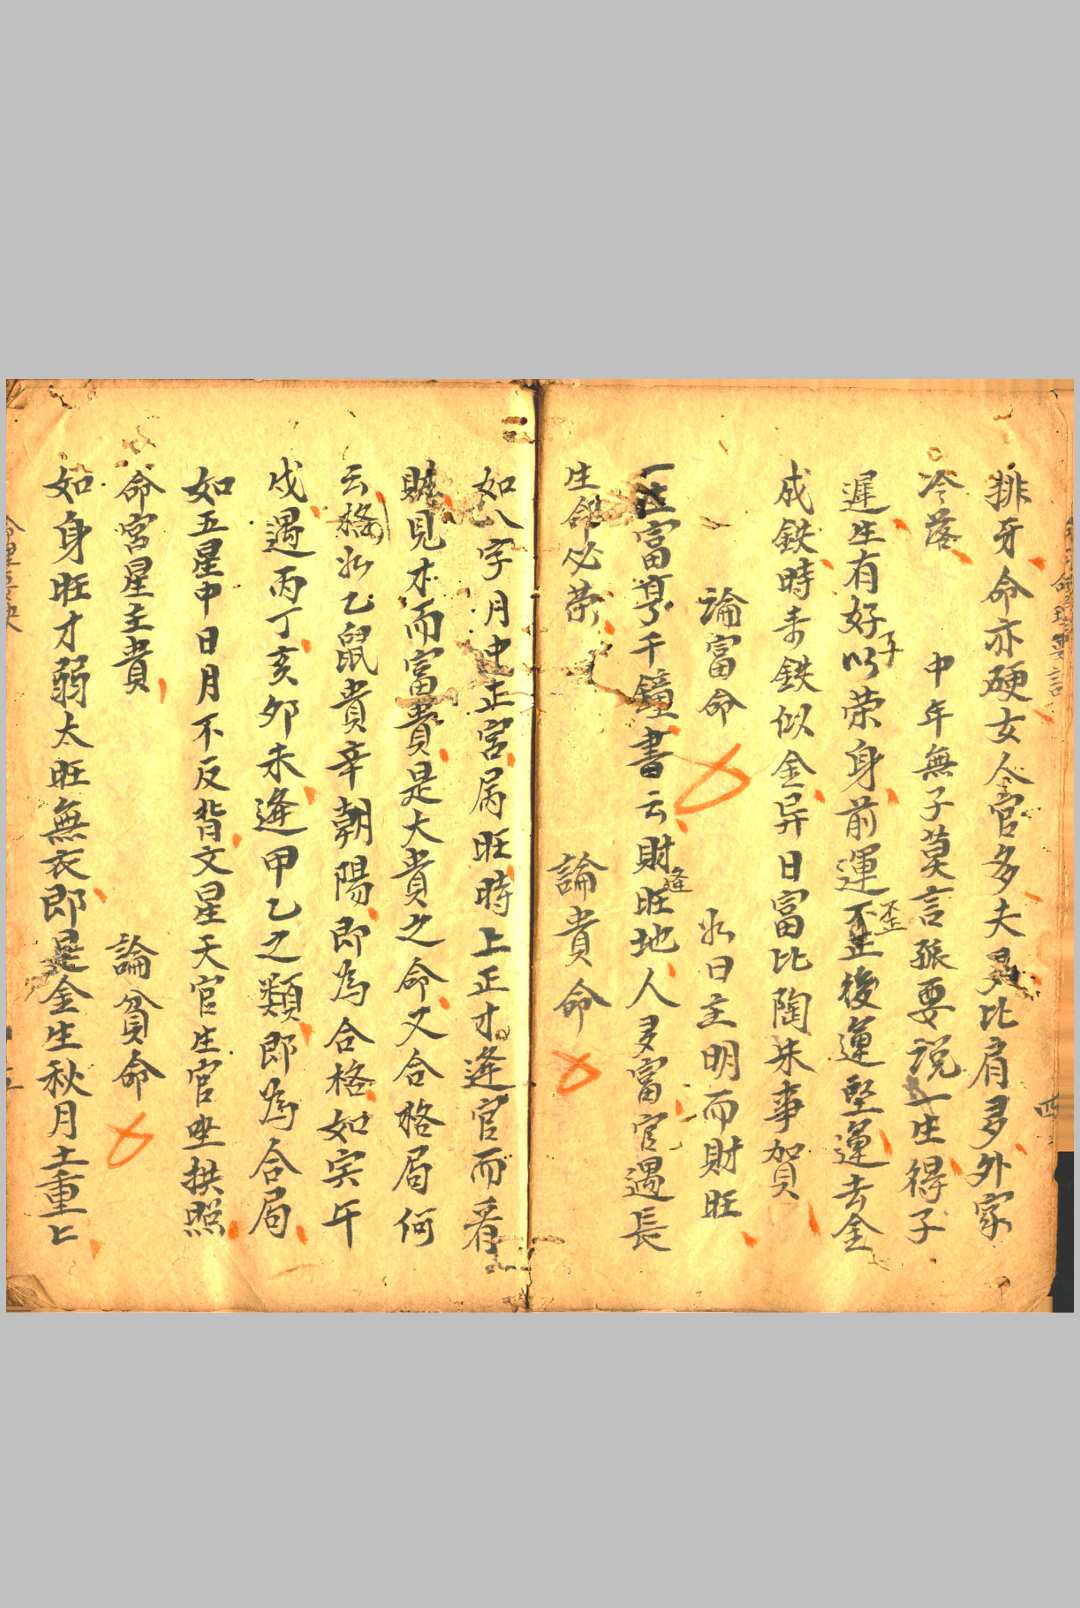 排牙命亦硬女人令官多夫多比肩多外家
冷落 中年無子莫言孤要說一生得子
遲生有好子以荣身前運歪後運堅運去金
成鉄時来鉄似金异日富比陶朱事加貝
論富命 如日主明而財旺
一法富享千鐘書云財逢旺地人多富官遇長
生命必荣 論貴命
如八字月中正官屬旺時上正才逢官而看
財見才而富貴是大貴之命又合格局何
云格如乙鼠貴辛朝陽即為合格如寅午
戌遇丙丁亥卯未逢甲乙之類即為合局
如五星中日月不反背文星天官生官坐拱照
命宮星主貴 論貧命
如身旺才弱太旺無衣即是金生秋月土重匕
四
五